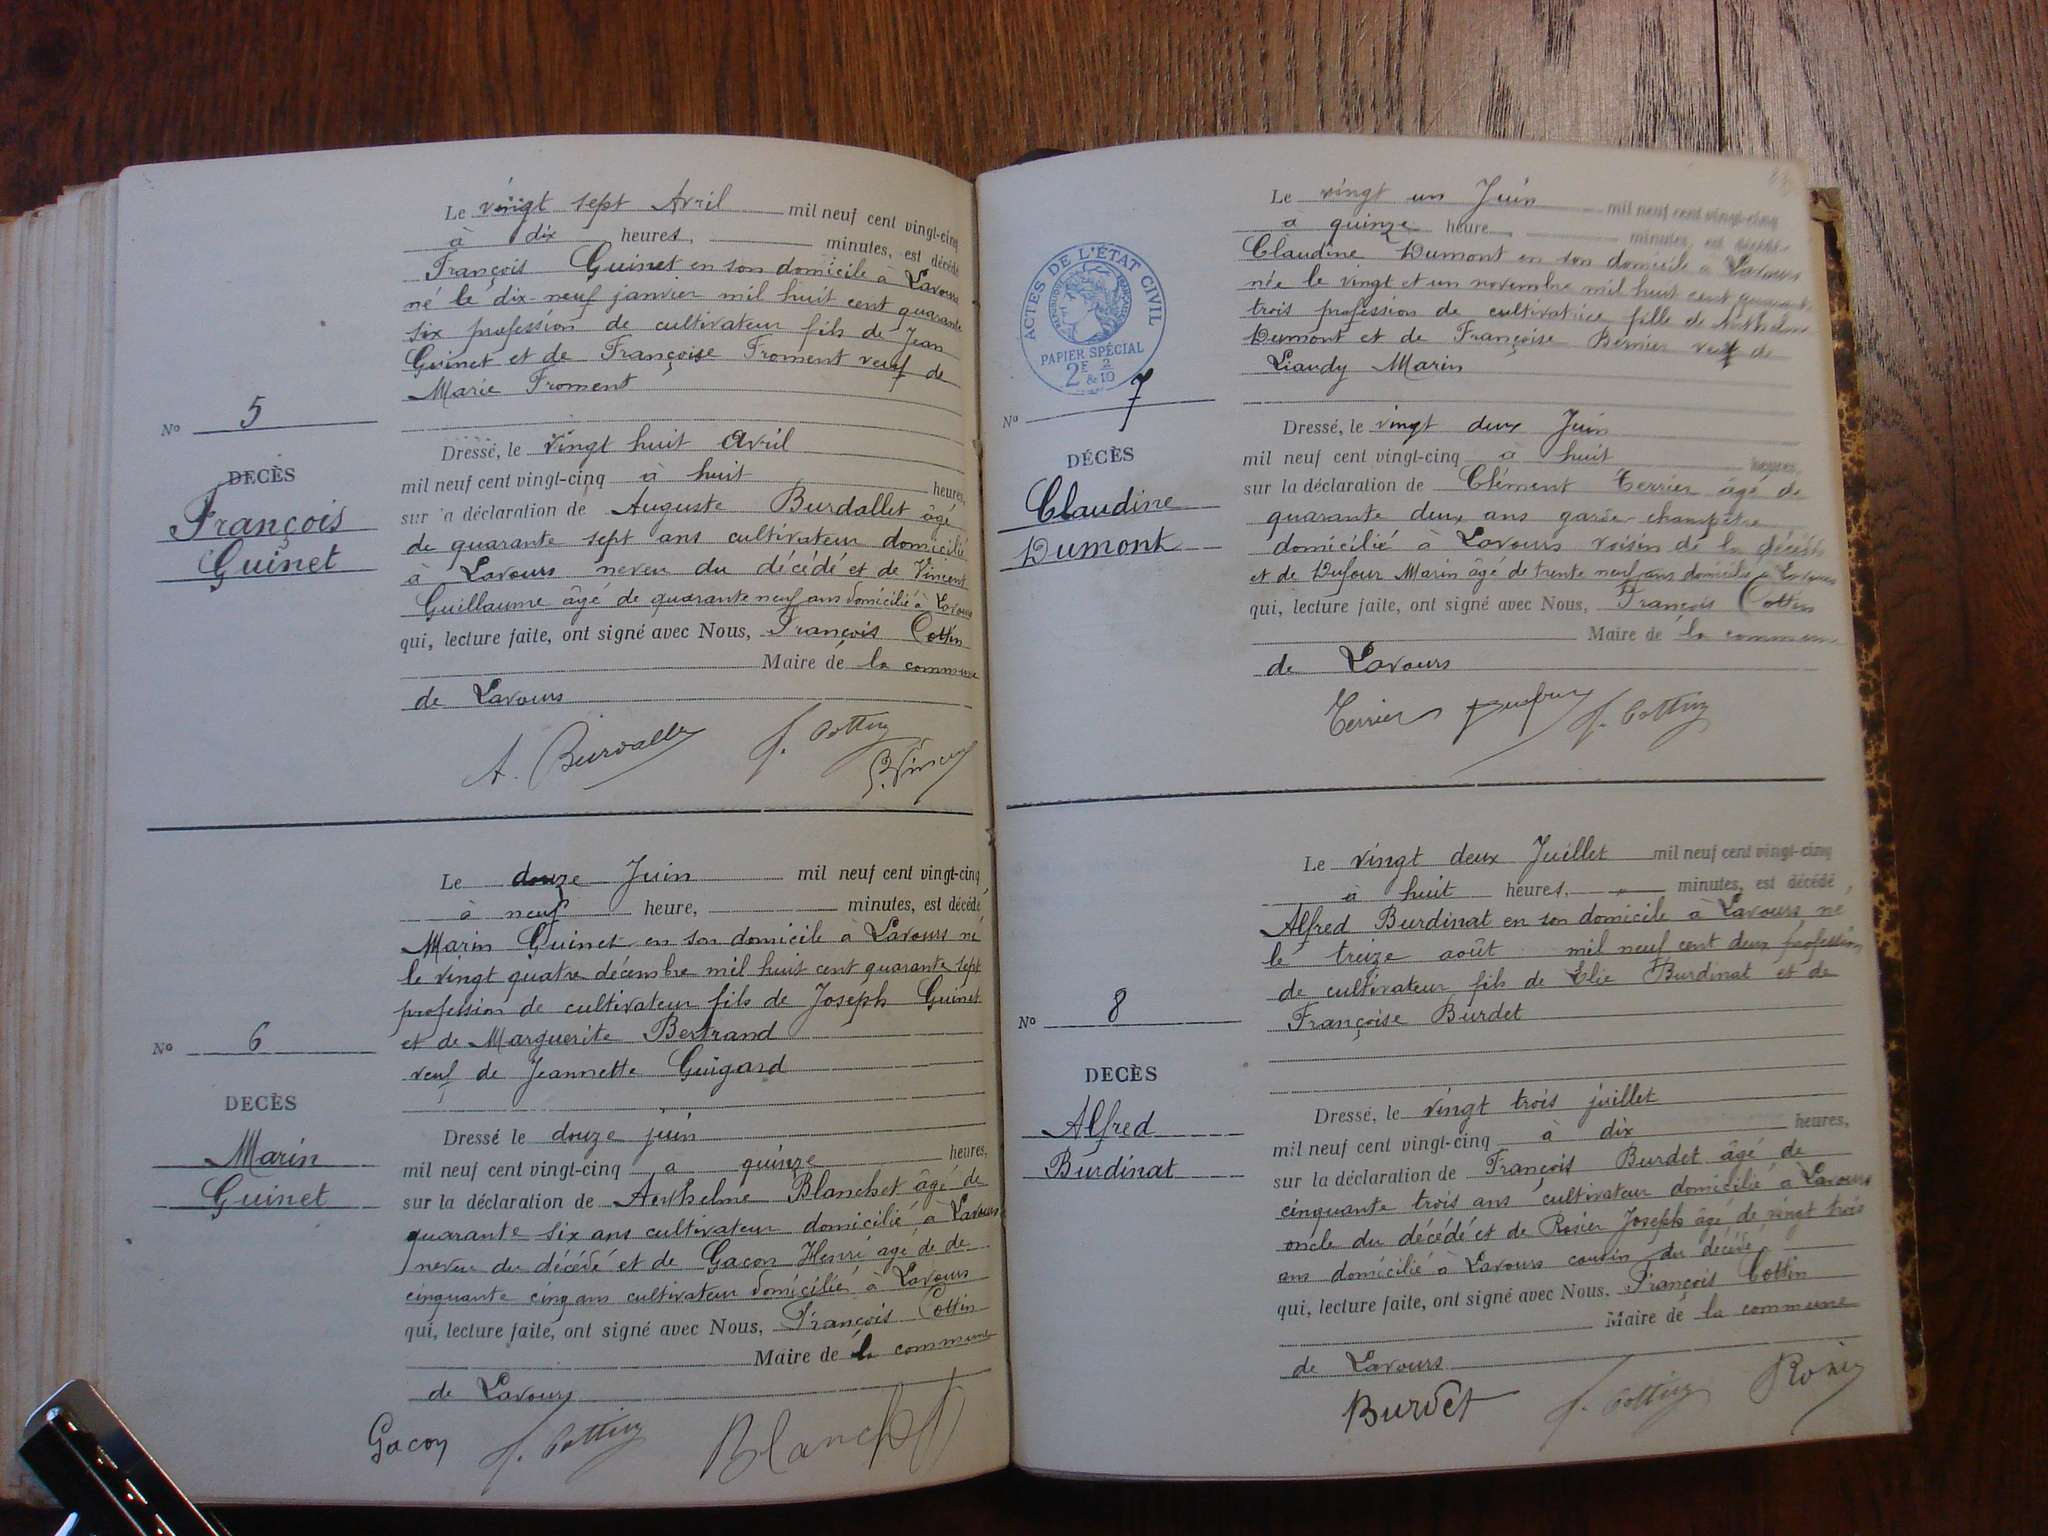 Le vingt sept Avril mil neuf cent vingt-cinq
à dix heures, minutes, est décédé
François Guinet en son domicile à Lavours
né le dix-neuf janvier mil huit cent quarante
six profession de cultivateur fils de Jean
Guinet et de Françoise Froment veuf de
Marie Froment
No 5
DECÈS
François
Guinet
Dressé, le vingt huit avril
mil neuf cent vingt-cinq à huit heures,
sur la déclaration de Auguste Burdallet âgé
de quarante sept ans cultivateur domicilié
à Lavours neveu du décédé et de Vincent
Guillaume âgé de quarante neuf ans domicilié à Lavours
qui, lecture faite, ont signé avec Nous, François Cottin
Maire de la commune
de Lavours
A. Burdallet f. Cottin
Le douze Juin mil neuf cent vingt-cinq
à neuf heure, minutes, est décédé
Marin Guinet en son domicile à Lavours né
le vingt quatre décembre mil huit cent quarante sept
profession de cultivateur fils de Joseph Guinet
et de Marguerite Bertrand
veuf de Jeannette Guigard
No 6
DECÈS
Marin
Guinet
Dressé le douze juin
mil neuf cent vingt-cinq a quinze heures,
sur la déclaration de Anthelme Blanchet âgé de
quarante six ans cultivateur domicilié a Lavours
neveu du décédé et de Gacon Henri âgé de de
cinquante cinq ans cultivateur domicilié à Lavours
qui, lecture faite, ont signé avec Nous, François Cottin
Maire de la commune
de Lavours
Gacon f. Cottin Blanchet
Le vingt un Juin mil neuf cent vingt-cinq
a quinze heure, minutes, est décédé
Claudine Dumont en son domicile a Lavours
née le vingt et un novembre mil huit cent quarante
trois profession de cultivatrice fille de Anthelme
Dumont et de Françoise Bernier de
Liaudy Marin
ACTES DE L'ÉTAT CIVIL
RÉPUBLIQUE FRANÇAISE
PAPIER SPÉCIAL
2F & 2/10
No 7
DÉCÈS
Claudine
Dumont
Dressé, le vingt deux Juin
mil neuf cent vingt-cinq a huit heures,
sur la déclaration de Clément Terrier âgé de
quarante deux ans garde champêtre
domicilié à Lavours voisin de la décédée
et de Dufour Marin âgé de trente neuf ans domicilié à Lavours
qui, lecture faite, ont signé avec Nous, François Cottin
Maire de la commune
de Lavours
Terrier Dufour f. Cottin
Le vingt deux Juillet mil neuf cent vingt-cinq
à huit heures, minutes, est décédé
Alfred Burdinat en son domicile à Lavours né
le treize août mil neuf cent deux profession
de cultivateur fils de Elie Burdinat et de
Françoise Burdet
No 8
DECÈS
Alfred
Burdinat
Dressé, le vingt trois juillet
mil neuf cent vingt-cinq à dix heures,
sur la déclaration de François Burdet âgé de
cinquante trois ans cultivateur domicilié à Lavours
oncle du décédé et de Rosier Joseph âgé de vingt trois
ans domicilié à Lavours cousin du décédé
qui, lecture faite, ont signé avec Nous, François Cottin
Maire de la commune
de Lavours
Burdet f. Cottin Rosier